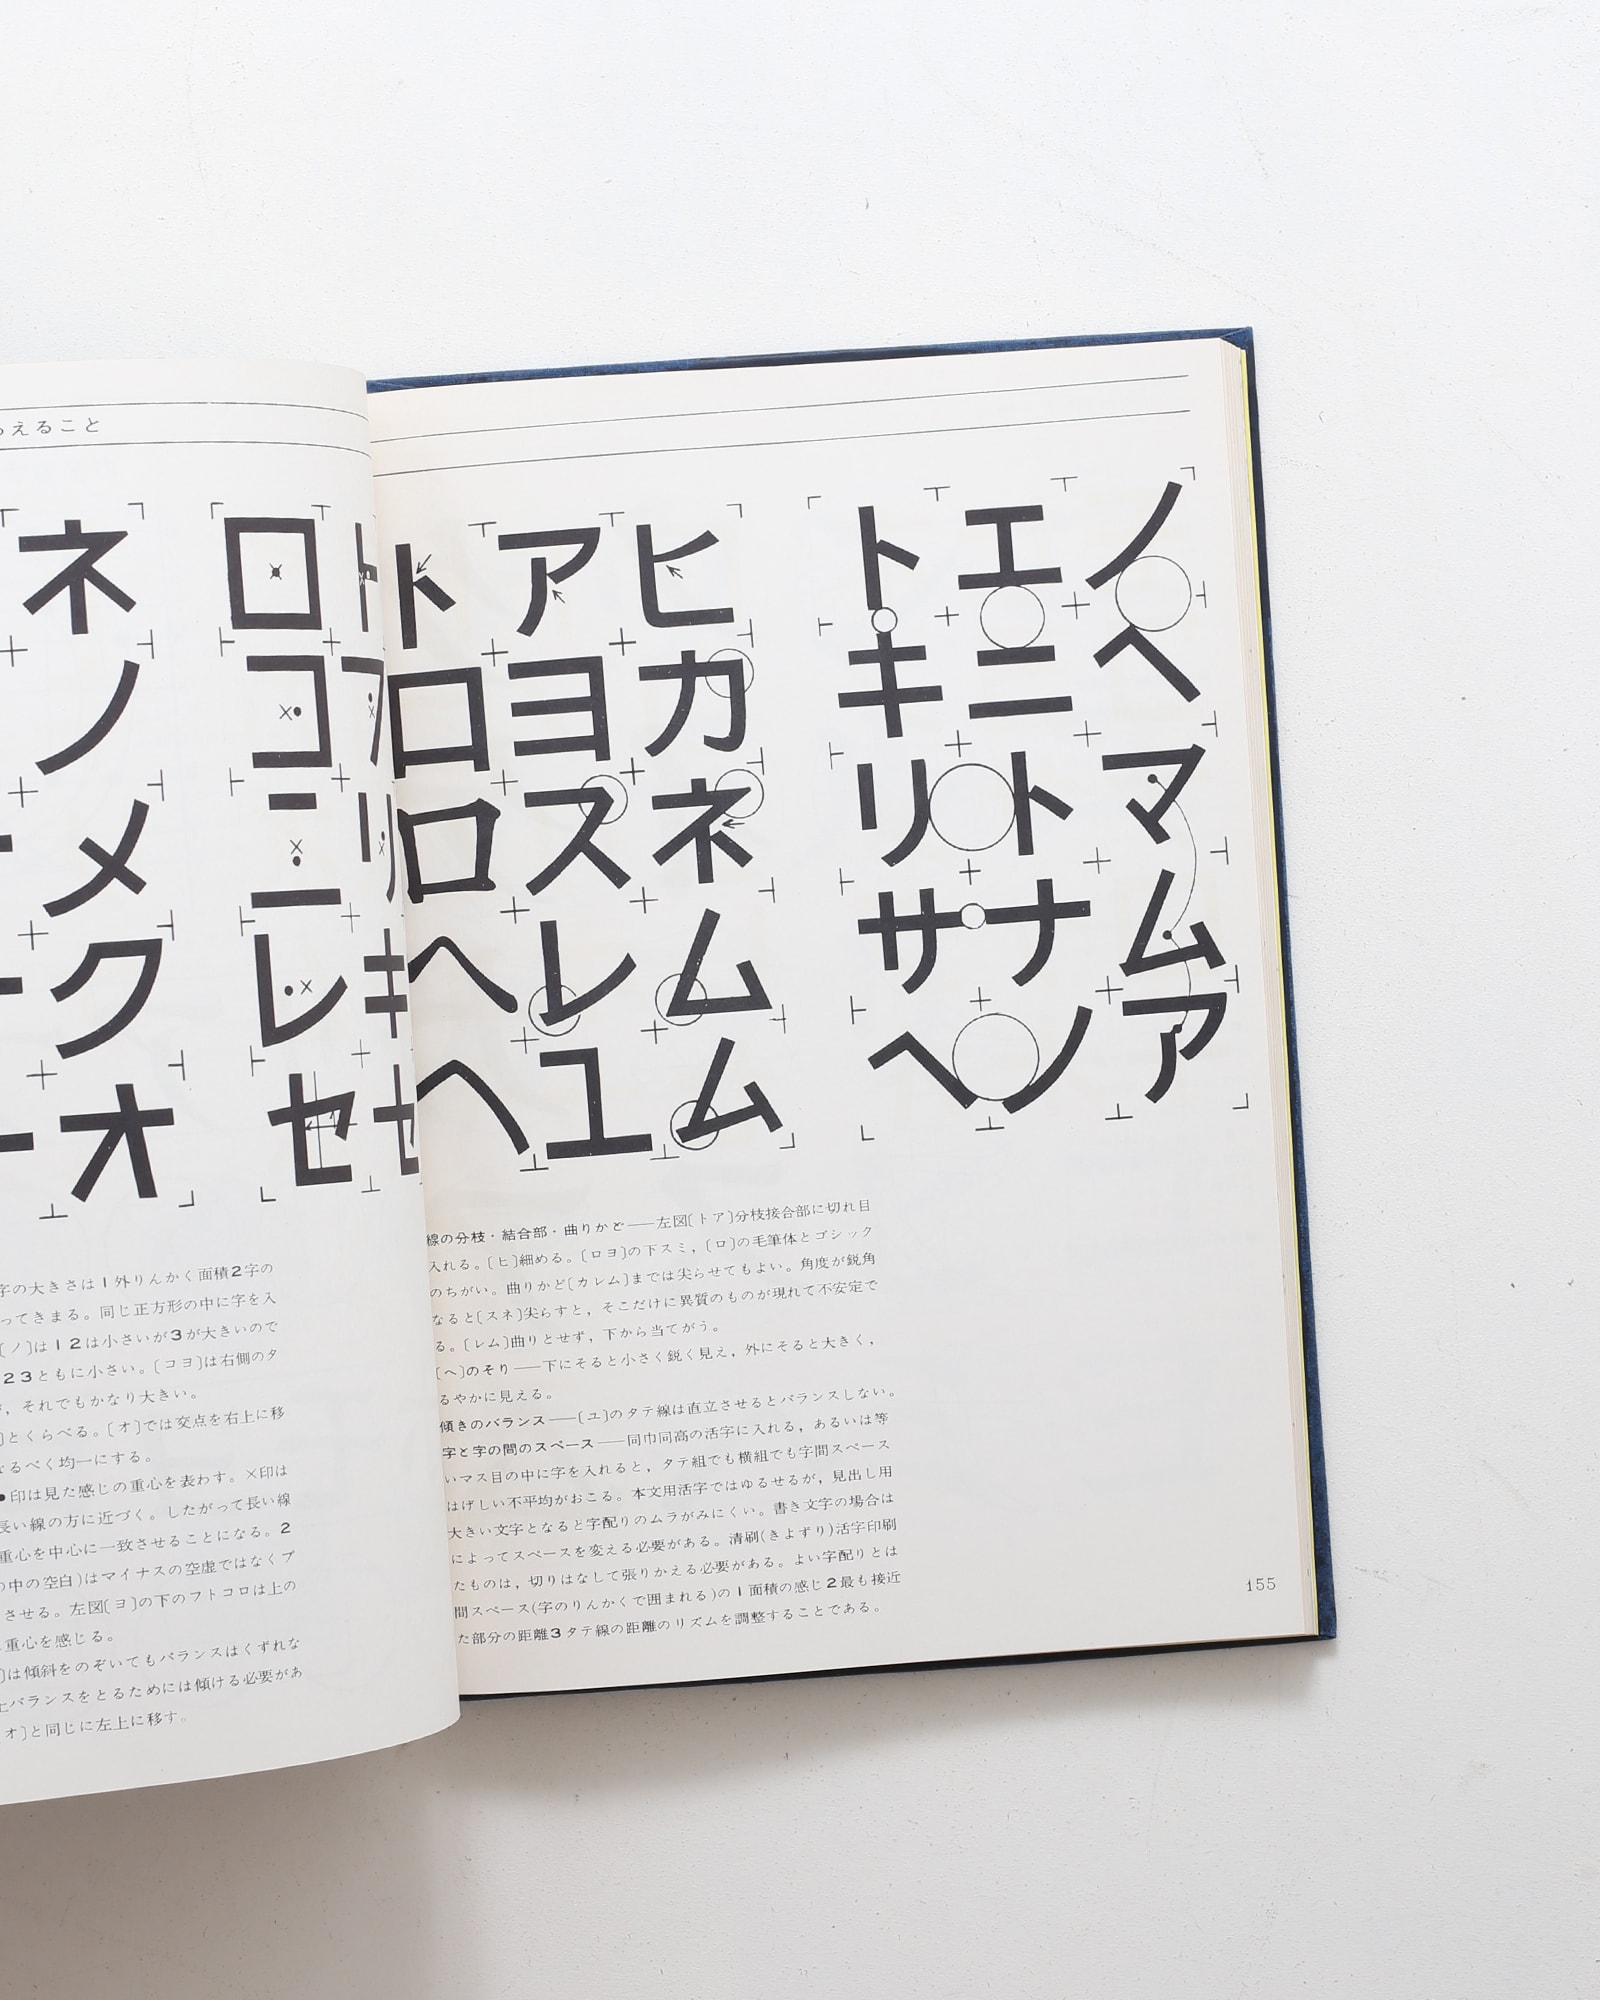 えること
ネ ロ ト
ノ コ フ
メ ニ リ
ク レ キ
オ セ セ
字の大きさは1外りんかく面積2字の
ってきまる。同じ正方形の中に字を入
〔ノ〕は12は小さいが3が大きいので
23ともに小さい。〔コヨ〕は右側のタ
，それでもかなり大きい。
〕とくらべる。〔オ〕では交点を右上に移
なるべく均一にする。
●印は見た感じの重心を表わす。×印は
長い線の方に近づく。したがって長い線
重心を中心に一致させることになる。2
の中の空白)はマイナスの空虚ではなくプ
させる。左図〔ヨ〕の下のフトコロは上の
重心を感じる。
〕は傾斜をのぞいてもバランスはくずれな
上バランスをとるためには傾ける必要があ
オ〕と同じに左上に移す。
ト ア ヒ
ロ ヨ カ
ロ ス ネ
ヘ レ ム
ヘ ユ ム
ト エ ノ
キ ニ ヘ
リ ト マ
サ ナ ム
ヘ ノ ア
線の分枝・結合部・曲りかど——左図〔トア〕分枝接合部に切れ目
入れる。〔ヒ〕細める。〔ロヨ〕の下スミ，〔ロ〕の毛筆体とゴシック
のちがい。曲りかど〔カレム〕までは尖らせてもよい。角度が鋭角
なると〔スネ〕尖らすと，そこだけに異質のものが現れて不安定で
る。〔レム〕曲りとせず，下から当てがう。
〔ヘ〕のそり——下にそると小さく鋭く見え，外にそると大きく，
るやかに見える。
傾きのバランス——〔ユ〕のタテ線は直立させるとバランスしない。
字と字の間のスペース——同巾同高の活字に入れる，あるいは等
いマス目の中に字を入れると，タテ組でも横組でも字間スペース
はげしい不平均がおこる。本文用活字ではゆるせるが，見出し用
大きい文字となると字配りのムラがみにくい。書き文字の場合は
によってスペースを変える必要がある。清刷(きよずり)活字印刷
たものは，切りはなして張りかえる必要がある。よい字配りとは
間スペース(字のりんかくで囲まれる)の1面積の感じ2最も接近
た部分の距離3タテ線の距離のリズムを調整することである。
155